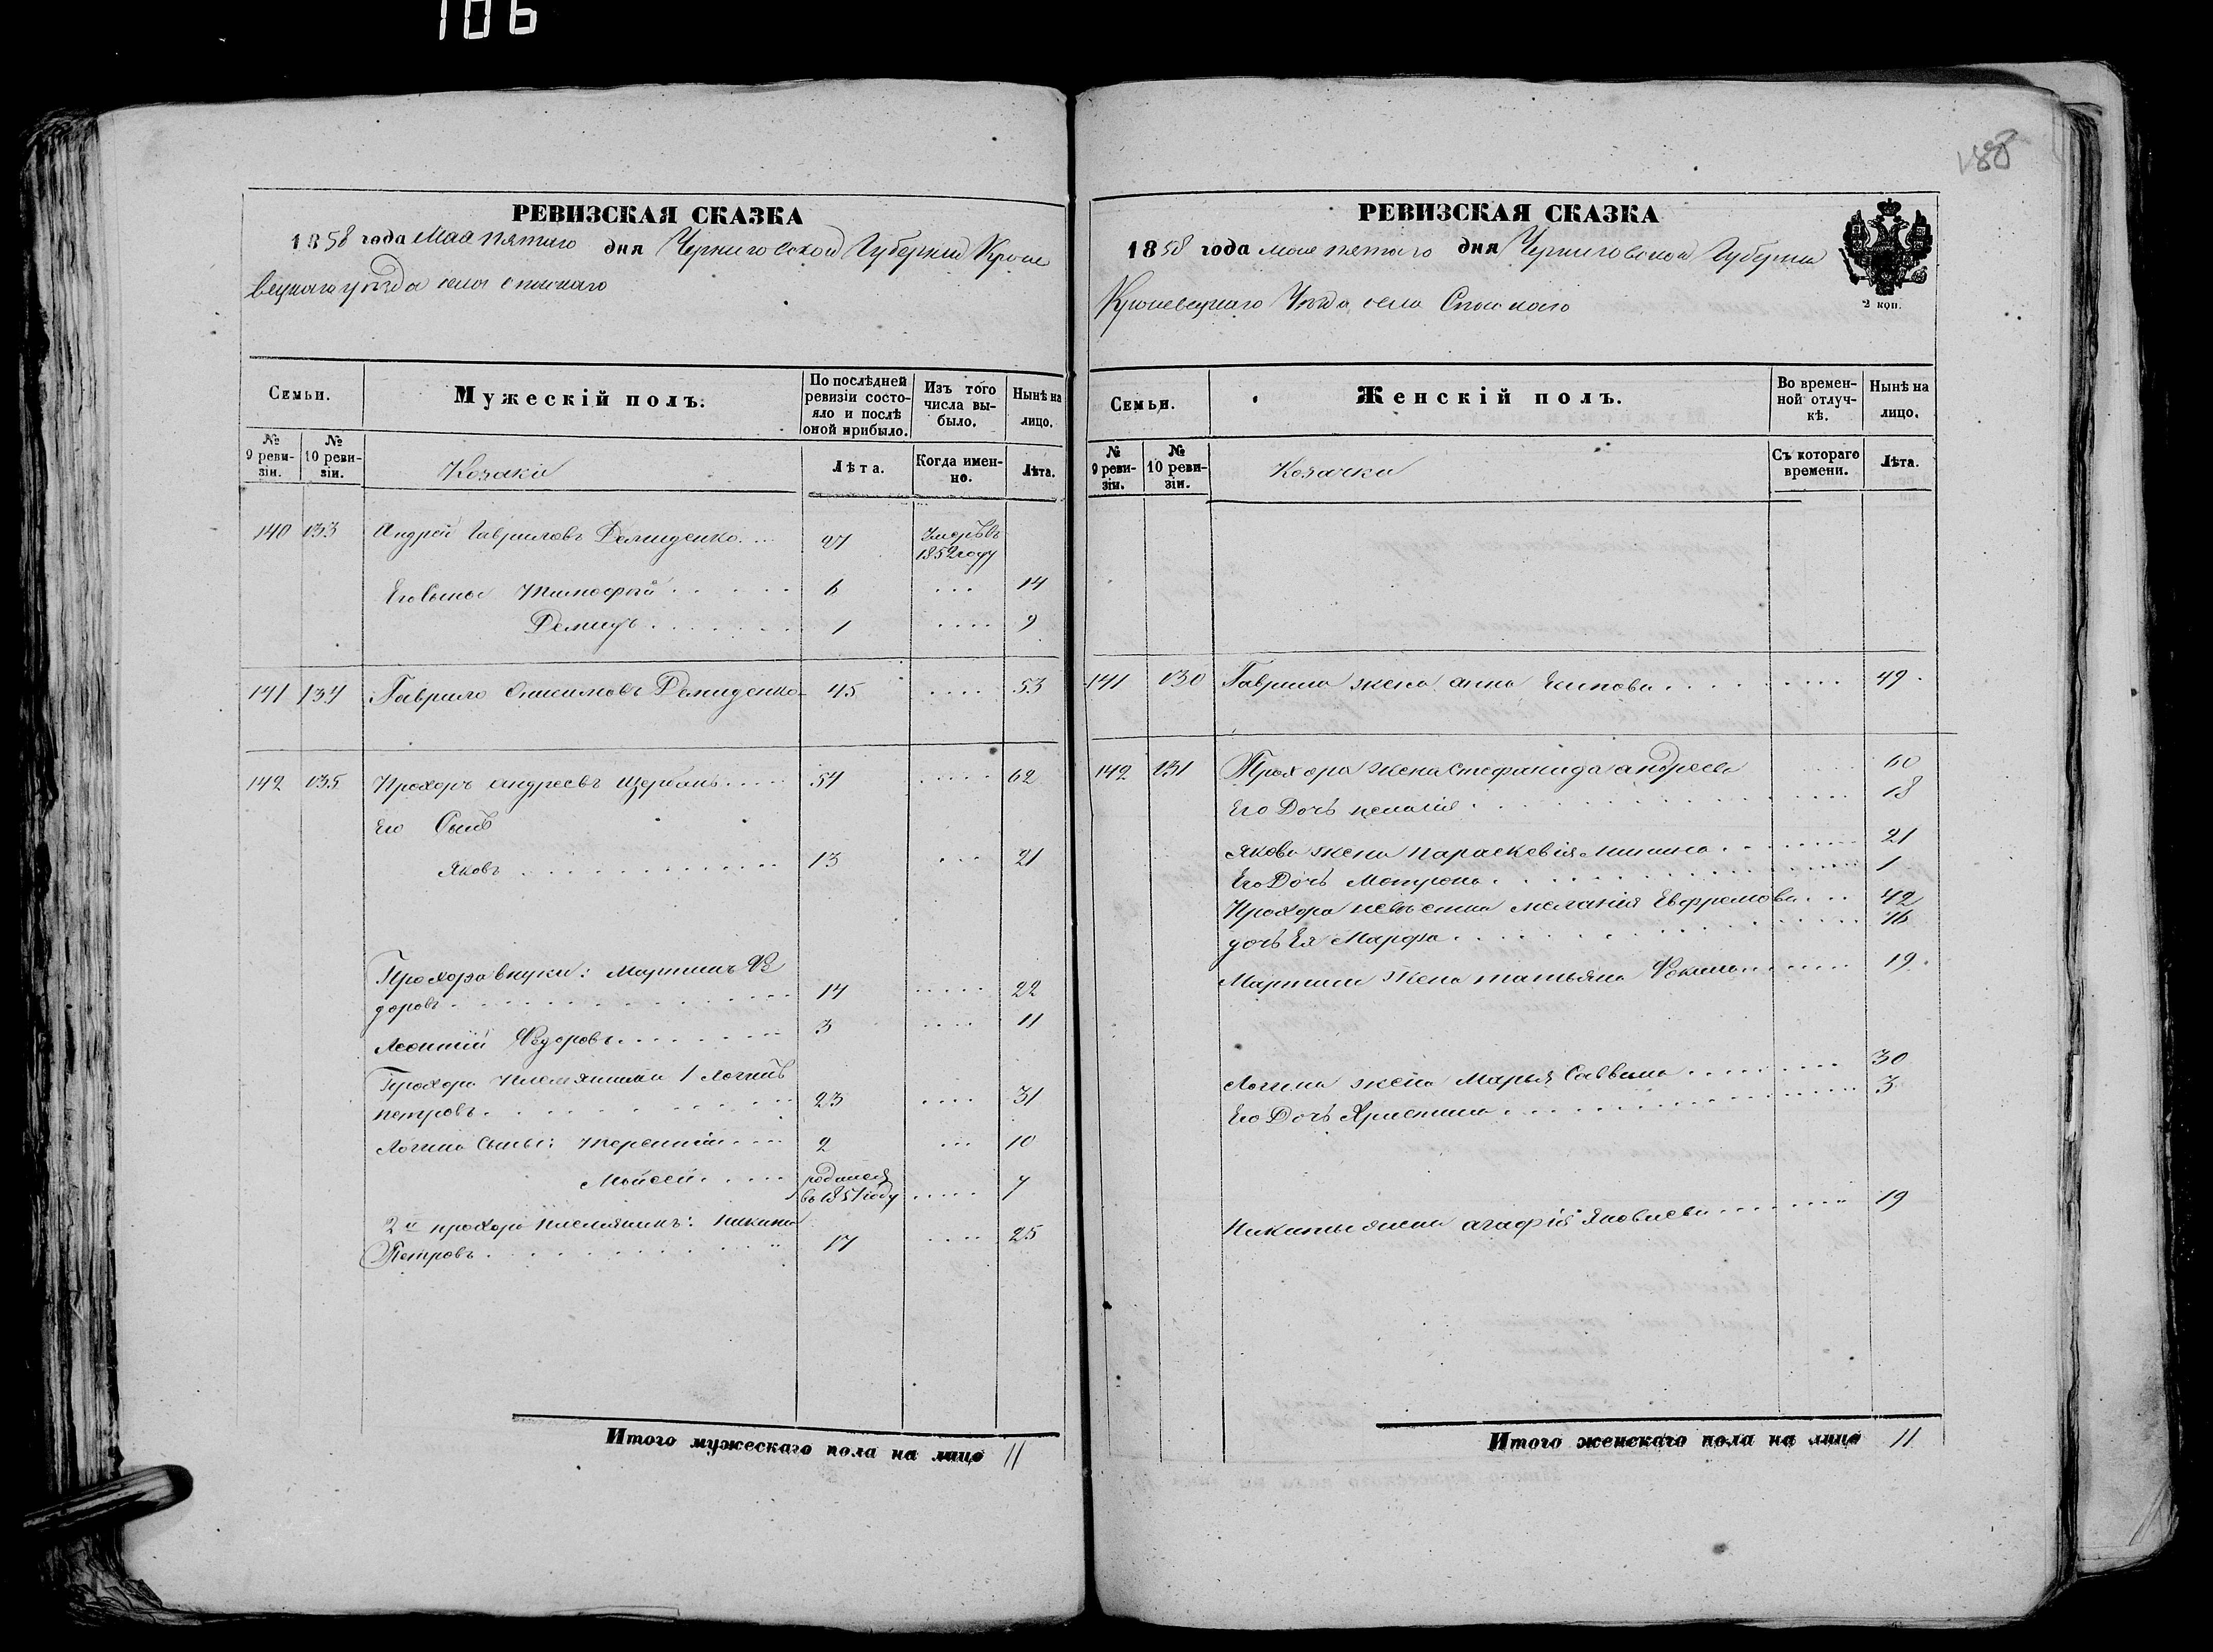 106
188
РЕВИЗСКАЯ СКАЗКА
1858 года Мая пятаго дня Черниговской Губернии Кроле
вецкаго уезда села Спаскаго
Семьи.
Мужескій полъ.
По послѣдней ревизіи состояло и послѣ оной прибыло.
Изъ того числа выбыло.
Нынѣ на лицо.
№ 9 ревизіи.
№ 10 ревизіи.
Козаки
Лѣта.
Когда именно.
Лѣта.
140 133 Андрей Гавриловъ Демиденко 27 Умеръ въ 1852 году
Его сыны Тимофей 6 14
Демидъ 1 9
141 134 Гаврило Онисимовъ Демиденко 45 53
142 135 Прохоръ Андреевъ Щербань 54 62
Его Сынъ
Яковъ 13 21
Прохора внуки: Мартинъ Фе
доровъ 14 22
Леонтий Федоровъ 3 11
Прохора племянники 1 Логинъ
петровъ 23 31
Логина Сыны: Терентий 2 10
Мойсей родился въ 1851 году 7
2й прохора племянникъ: Никита
Петровъ 17 25
Итого мужескаго пола на лицо 11
РЕВИЗСКАЯ СКАЗКА
1858 года мая пятаго дня Черниговской Губернии
Кролевецкаго Уезда села Спаскаго
2 коп.
Семьи.
Женскій полъ.
Во временной отлучкѣ.
Нынѣ на лицо.
№ 9 ревизіи.
№ 10 ревизіи.
Козачки
Съ котораго времени.
Лѣта.
141 130 Гаврила жена анна 49
142 131 Прохора жена Стефанида андреева 60
Его Дочь 18
Якова жена параскевія Минина 21
Его Дочь Матрона 1
Прохора невѣстка мелания Евфремова 42
дочь Ея Марфа 16
Мартина Жена татьяна Фокина 19
Логина жена Марья Саввина 30
Его Дочь Христина 3
Никиты жена агафія Яковлева 19
Итого женскаго пола на лицо 11